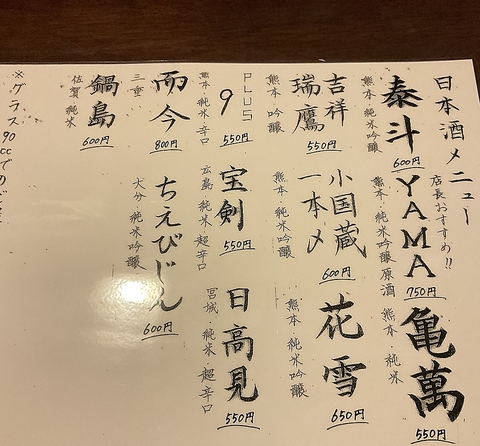 日本酒メニュー
店長おすすめ!!
泰斗
熊本 純米吟醸
600円
YAMA
熊本・純米吟醸原酒
750円
亀萬
熊本 純米
550円
吉祥
瑞鷹
熊本 吟醸
550円
小国蔵
一本〆
熊本・純米吟醸
600円
花雪
熊本 純米吟醸
650円
PLUS
9
熊本 純米 辛口
550円
宝剣
広島 純米 超辛口
550円
日高見
宮城 純米 超辛口
550円
而今
三重
800円
ちえびじん
大分 純米吟醸
600円
鍋島
佐賀 純米
600円
※グラス90ccでの